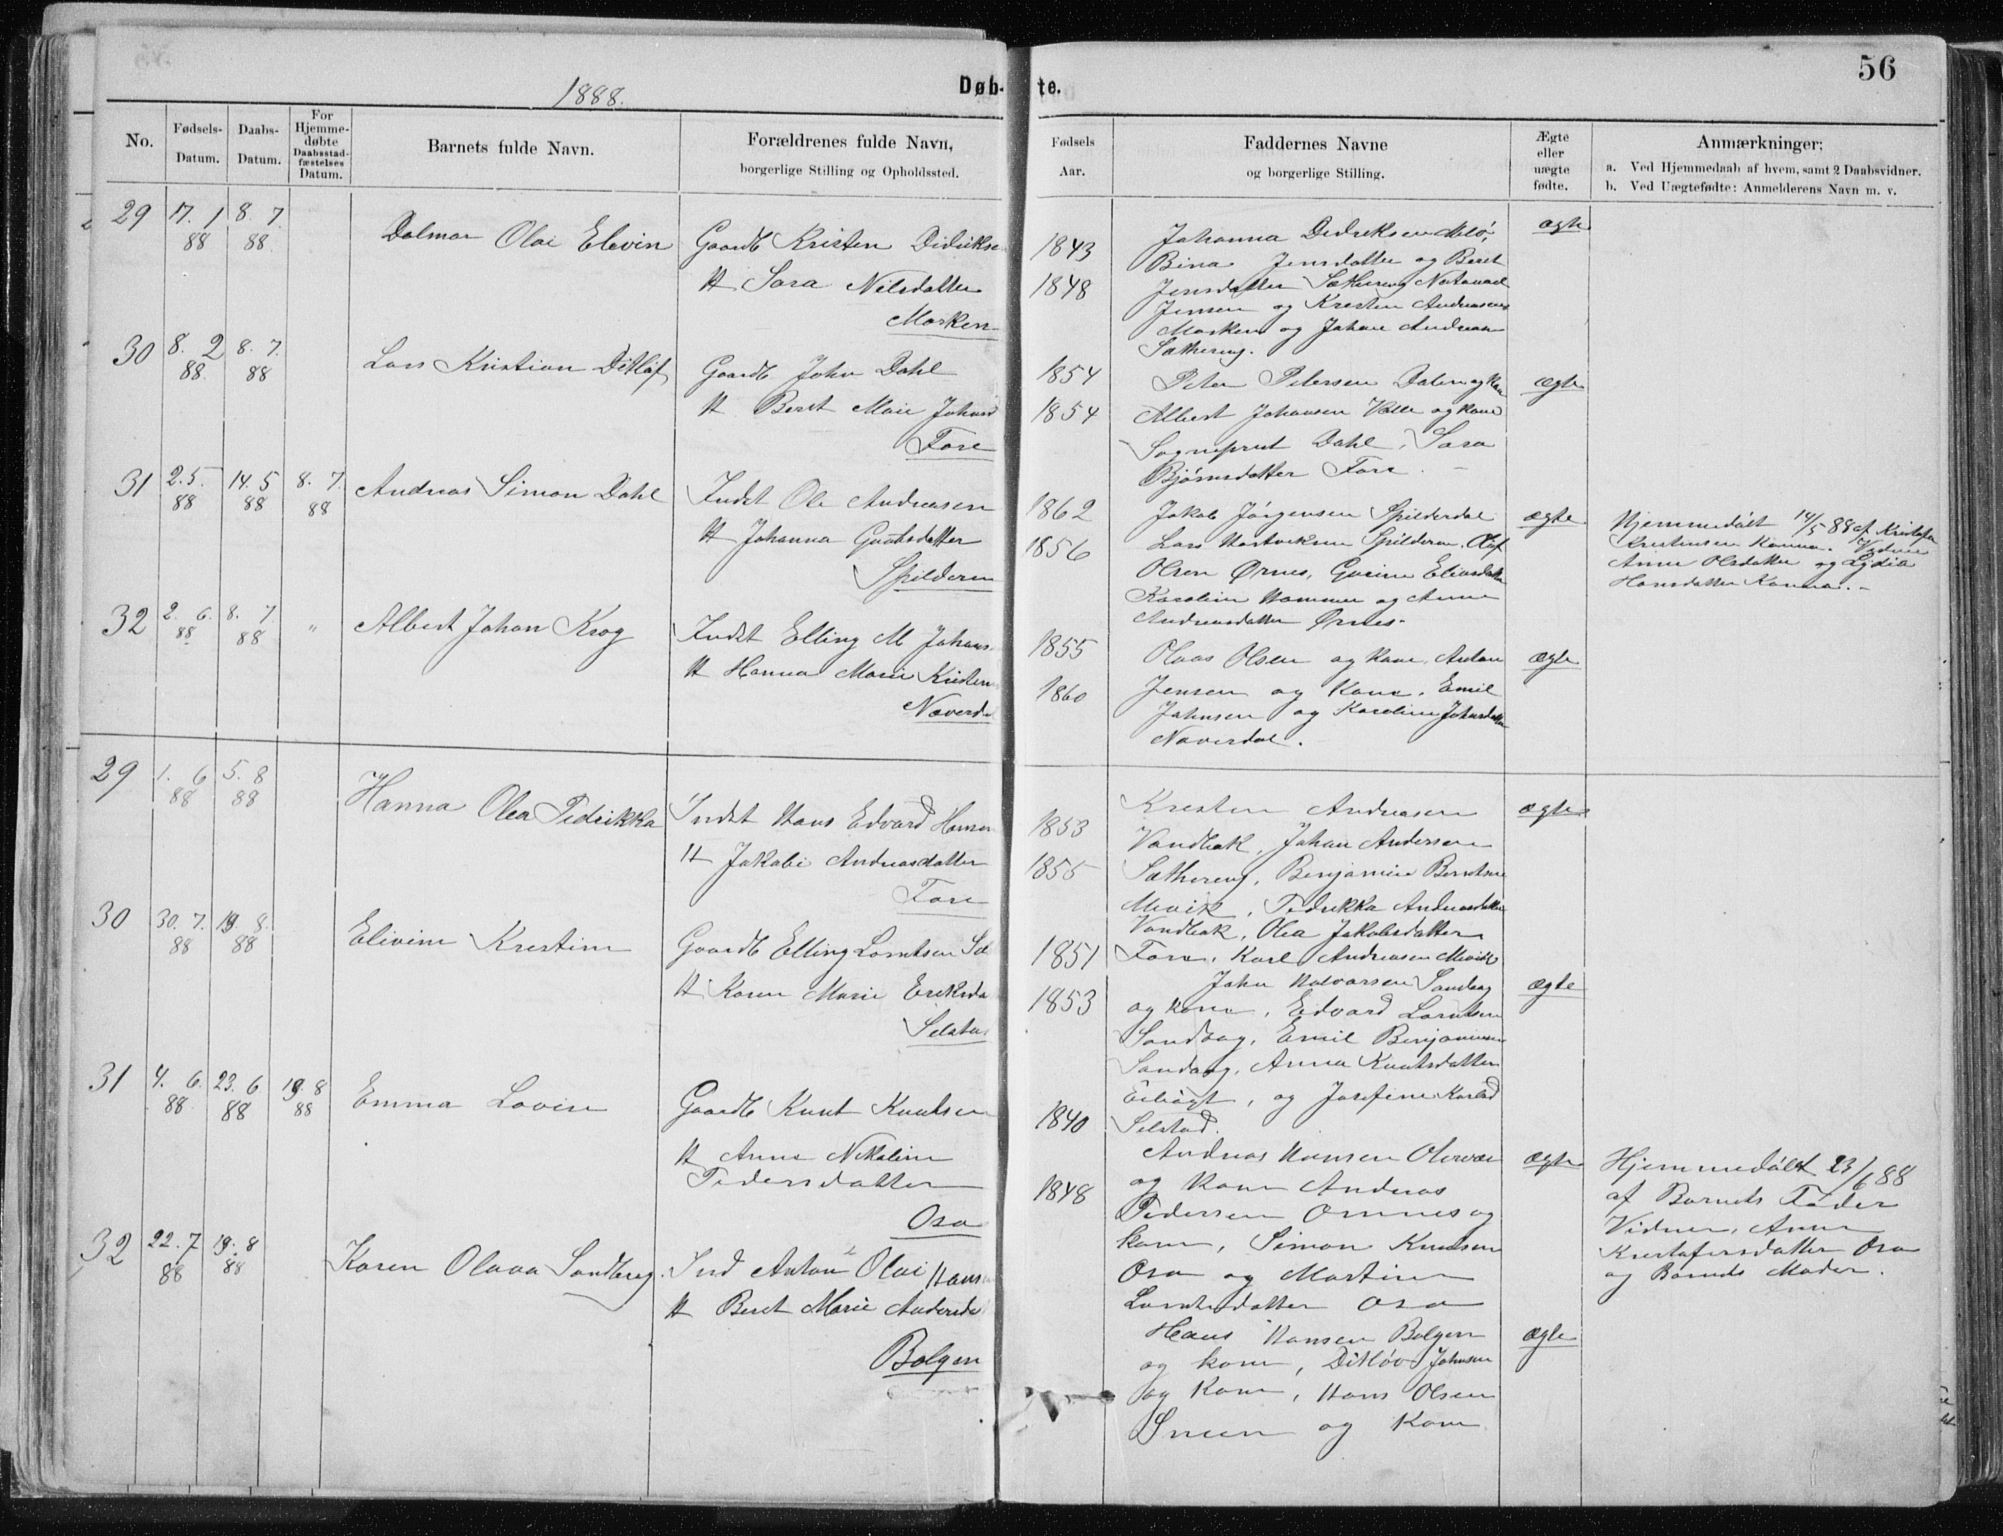 56
1888.
Døb-te.
No.
Fødsels-Datum.
Daabs-Datum.
For Hjemme-døbte Daabsstad-fæstelses Datum.
Barnets fulde Navn.
Forældrenes fulde Navn,
borgerlige Stilling og Opholdssted.
Fødsels Aar.
Faddernes Navne
og borgerlige Stilling.
Ægte eller uægte fødte.
Anmærkninger:
a. Ved Hjemmedaab af hvem, samt 2 Daabsvidner.
b. Ved Uægtefødte: Anmelderens Navn m. v.
29 17. 1 88 8. 7 88. Dalmar Olai Elevin
Gaardb Kristen Didrikse
H Sara Nilsdatter
Marken
1843
1848
Johanna Didriksen
Bina Jensdatter og Beret
Jensdatter Sætereng
Jensen og Kresten Andreasen
Marken og Johan Andreas
Sætereng.
ægte
30 8. 2 88. 8. 7. 88 Lars Kristian Ditlåf
Gaardb John Dahl
H Beret Marie Johns
Fore
1854
1854
Peter Petersen Dalen og Kone
Albert Johansen Valle og Kone
Sogneprest Dahl, Sara
Bjørnsdatter Fore.
ægte
31 2. 5. 88 14. 5 88 8. 7. 88 Andreas Simon Dahl
Indst Ole Andreasen
H Johanna
Spilderen
1862
1856
Jakob Jørgensen Spilderdal
Lars Hartviksen Spilderen, Olaf
Olsen Ørnes, Gurine Eliasdatter
Karoline Hammer og Anne
Andreasdatter Ørnes.
ægte
Hjemmedøbt 14/5 88 af Kristofer
Kristensen Kanna. Vidner
Anne Olsdatter og Lydia
Hansdatter Kanna.-
32 2. 6. 88 8. 7 88 " Albert Johan Krog
Indst Elling M Johans
H Hanna Marie Kristen
Naverd
1855
1860
Olaus Olsen og Kone, Anton
Jensen og Kone. Emil
Johnsen og Karoline Johnsdatter
Naverdal.
ægte
29 1. 6 88 5. 8 88 Hanna Olea Pedrikka
Indst Hans Edvard Hansen
H Jakobi Andreasdatter
Fore
1853
1855
Kresten Andreasen
Vandbak, Johan Andersen
Sætereng, Benjamin Berntsen
Mevik, Pedrikka Andreasdatter
Vandbak, Olea Jakobsdatter
Fore, Karl Andreasen Mevik
ægte
30 30. 7. 88 19. 8. 88 Elivine Krestine
Gaardb Elling Lorntsen
H Karen Marie Eriksda
Selstad
1851
1853
John Halvarsen Sandaag
og Kone, Edvard Lorntsen
Sandaag, Emil Benjaminsen
Sandaag, Anna Knutsdatter
og Josefine Karlsd
Selstad.
ægte
31 4. 6. 88 23. 6 88 19. 8 88 Emma Lovise
Gaardb Knut Knutsen
H Anne Nikoline
Pedersdatter
Osa
1840
1848
Andreas Hansen
og Kone Andreas
Pedersen Ornnes og
Kone, Simon Knutsen
Osa og Martine
Lorntsdatter Osa
ægte
Hjemmedøbt 23/6 88
af Barnets Fader
Vidner, Anne
Kristofersdatter Osa
og Barnets Moder.
32 22. 7 88 19. 8 88 Karen Olava Sandberg.
Ind Anton Olai Hans
H Beret Marie Andersda
Bolgen
Hans Hansen Bolgen
og Kone, Ditløv Johnsen
og Kone, Hans Olsen
og Kone
ægte